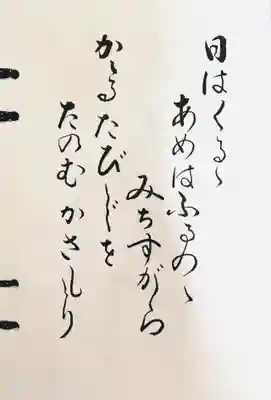 日はくるゝ
あめはふるのゝ
みちすがら
かゝるたびぢを
たのむかさもり